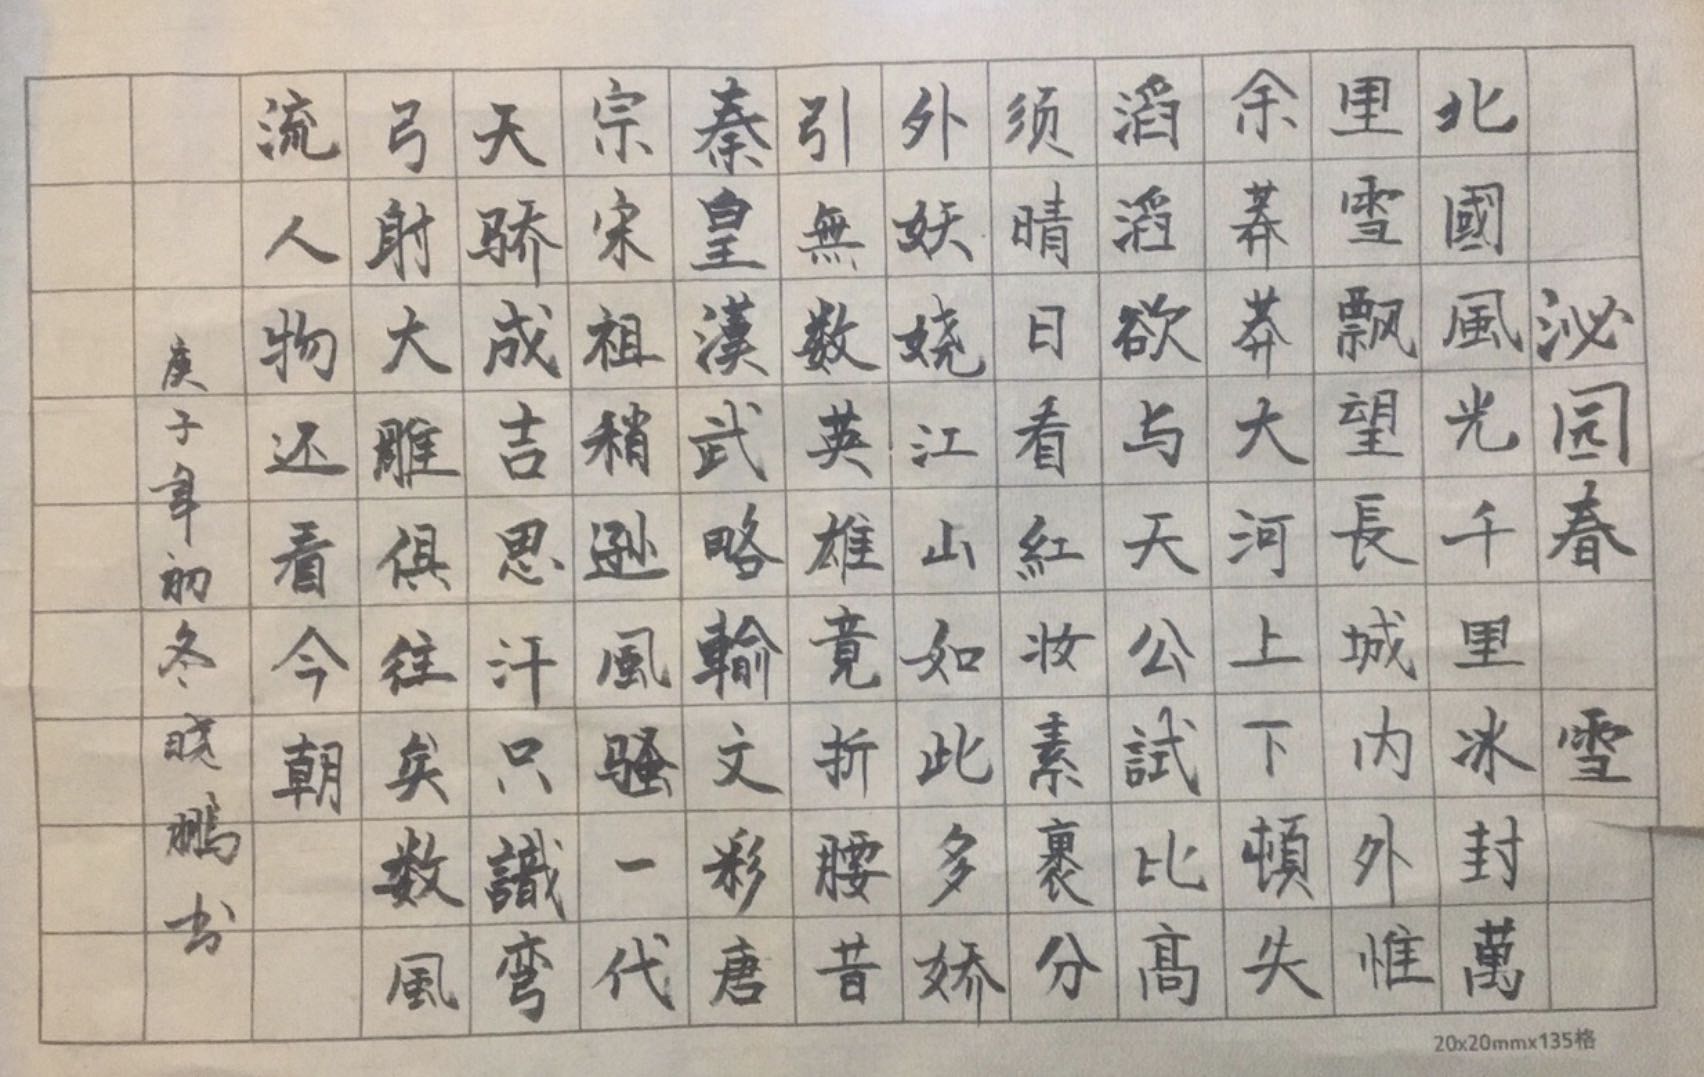 泌园春 雪
北國風光千里冰封萬
里雪飘望長城内外惟
余莽莽大河上下頓失
滔滔欲与天公試比高
须晴日看紅妆素裹分
外妖娆江山如此多娇
引無数英雄竟折腰昔
秦皇漢武略輸文彩唐
宗宋祖稍逊風骚一代
天骄成吉思汗只識弯
弓射大雕俱往矣数風
流人物还看今朝
庚子年初冬晓鹏书
20x20mmx135格